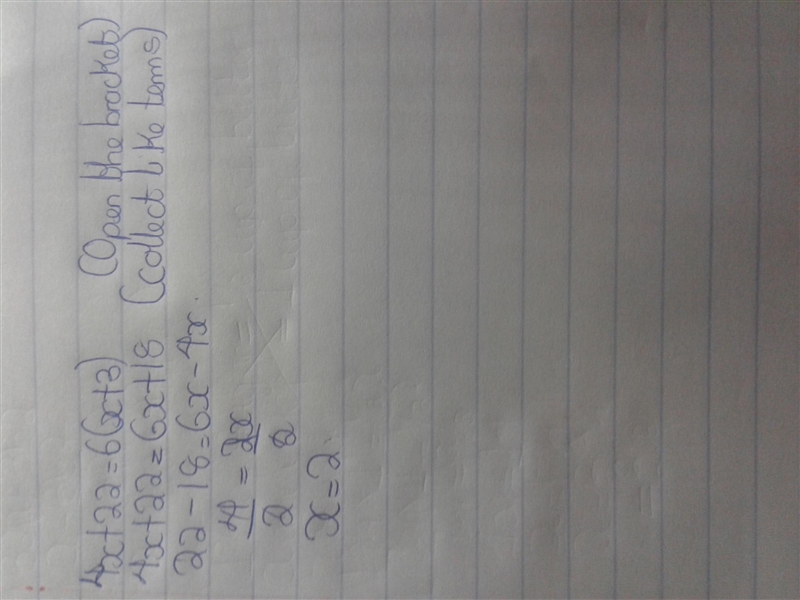 4x+22=6(x+3) (Open the bracket)
4x+22=6x+18 (collect like terms)
22-18=6x-4x.
4 = 2x
2 2
x=2.